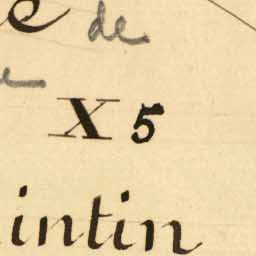 de
X 5
intin